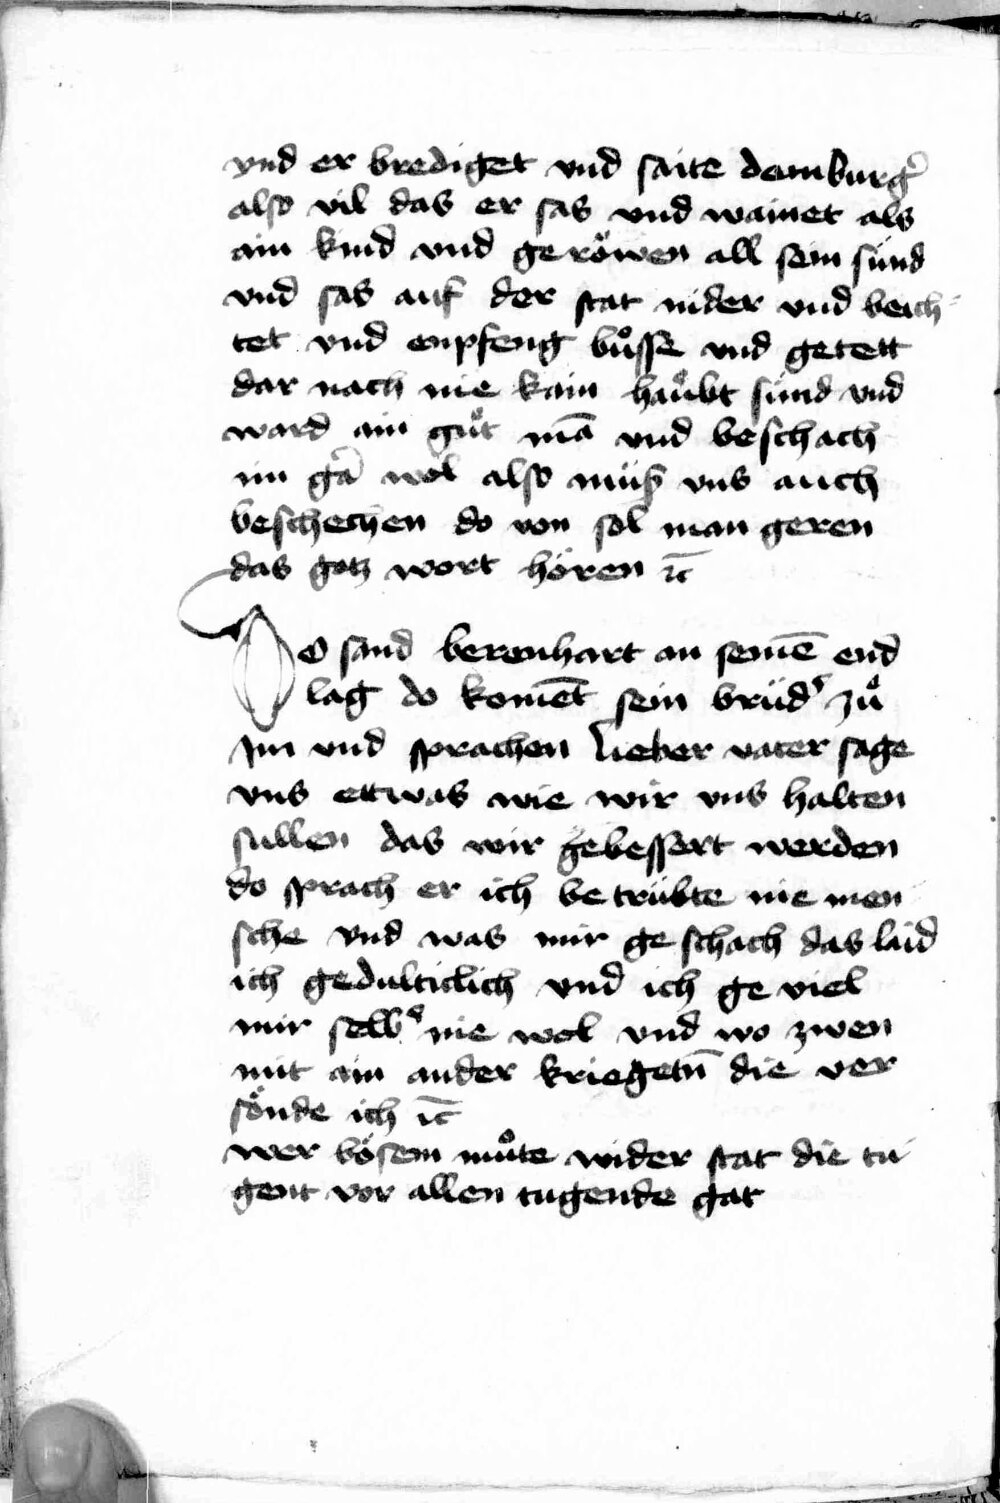 vnd er brediget vnd saite dem burgr̄
also vil das er sas vnd wainet als
ain kind vnd geröwen all sein sünd
vnd sas auf der stat nider vnd beich-
tet vnd enpfeng bůsse vnd getett
dar nach nie kain haůbt sünd vnd
ward ain gůt mā vnd beschach
im gā wol also müß vns auch
beschechen do von sol man geren
das gotz wort hören ⁊c̄
Do sand berenhart an seinē end
lag do komēt sein brüdʼ zů
Im vnd sprachen lieber vater sage
vns ettwas wie wir vns halten
sullen das wir gebessert werden
do sprach er ich be trübte nie men
sche vnd was mir ge schach das laid
ich gedulticlich vnd ich ge viel
mir selbʼ nie wol vnd wo zwen
mit ain ander kriegetn̄ die ver
sönde ich ⁊c̄
wer bösem můte wider stat die tu
gent vor allen tugende gat